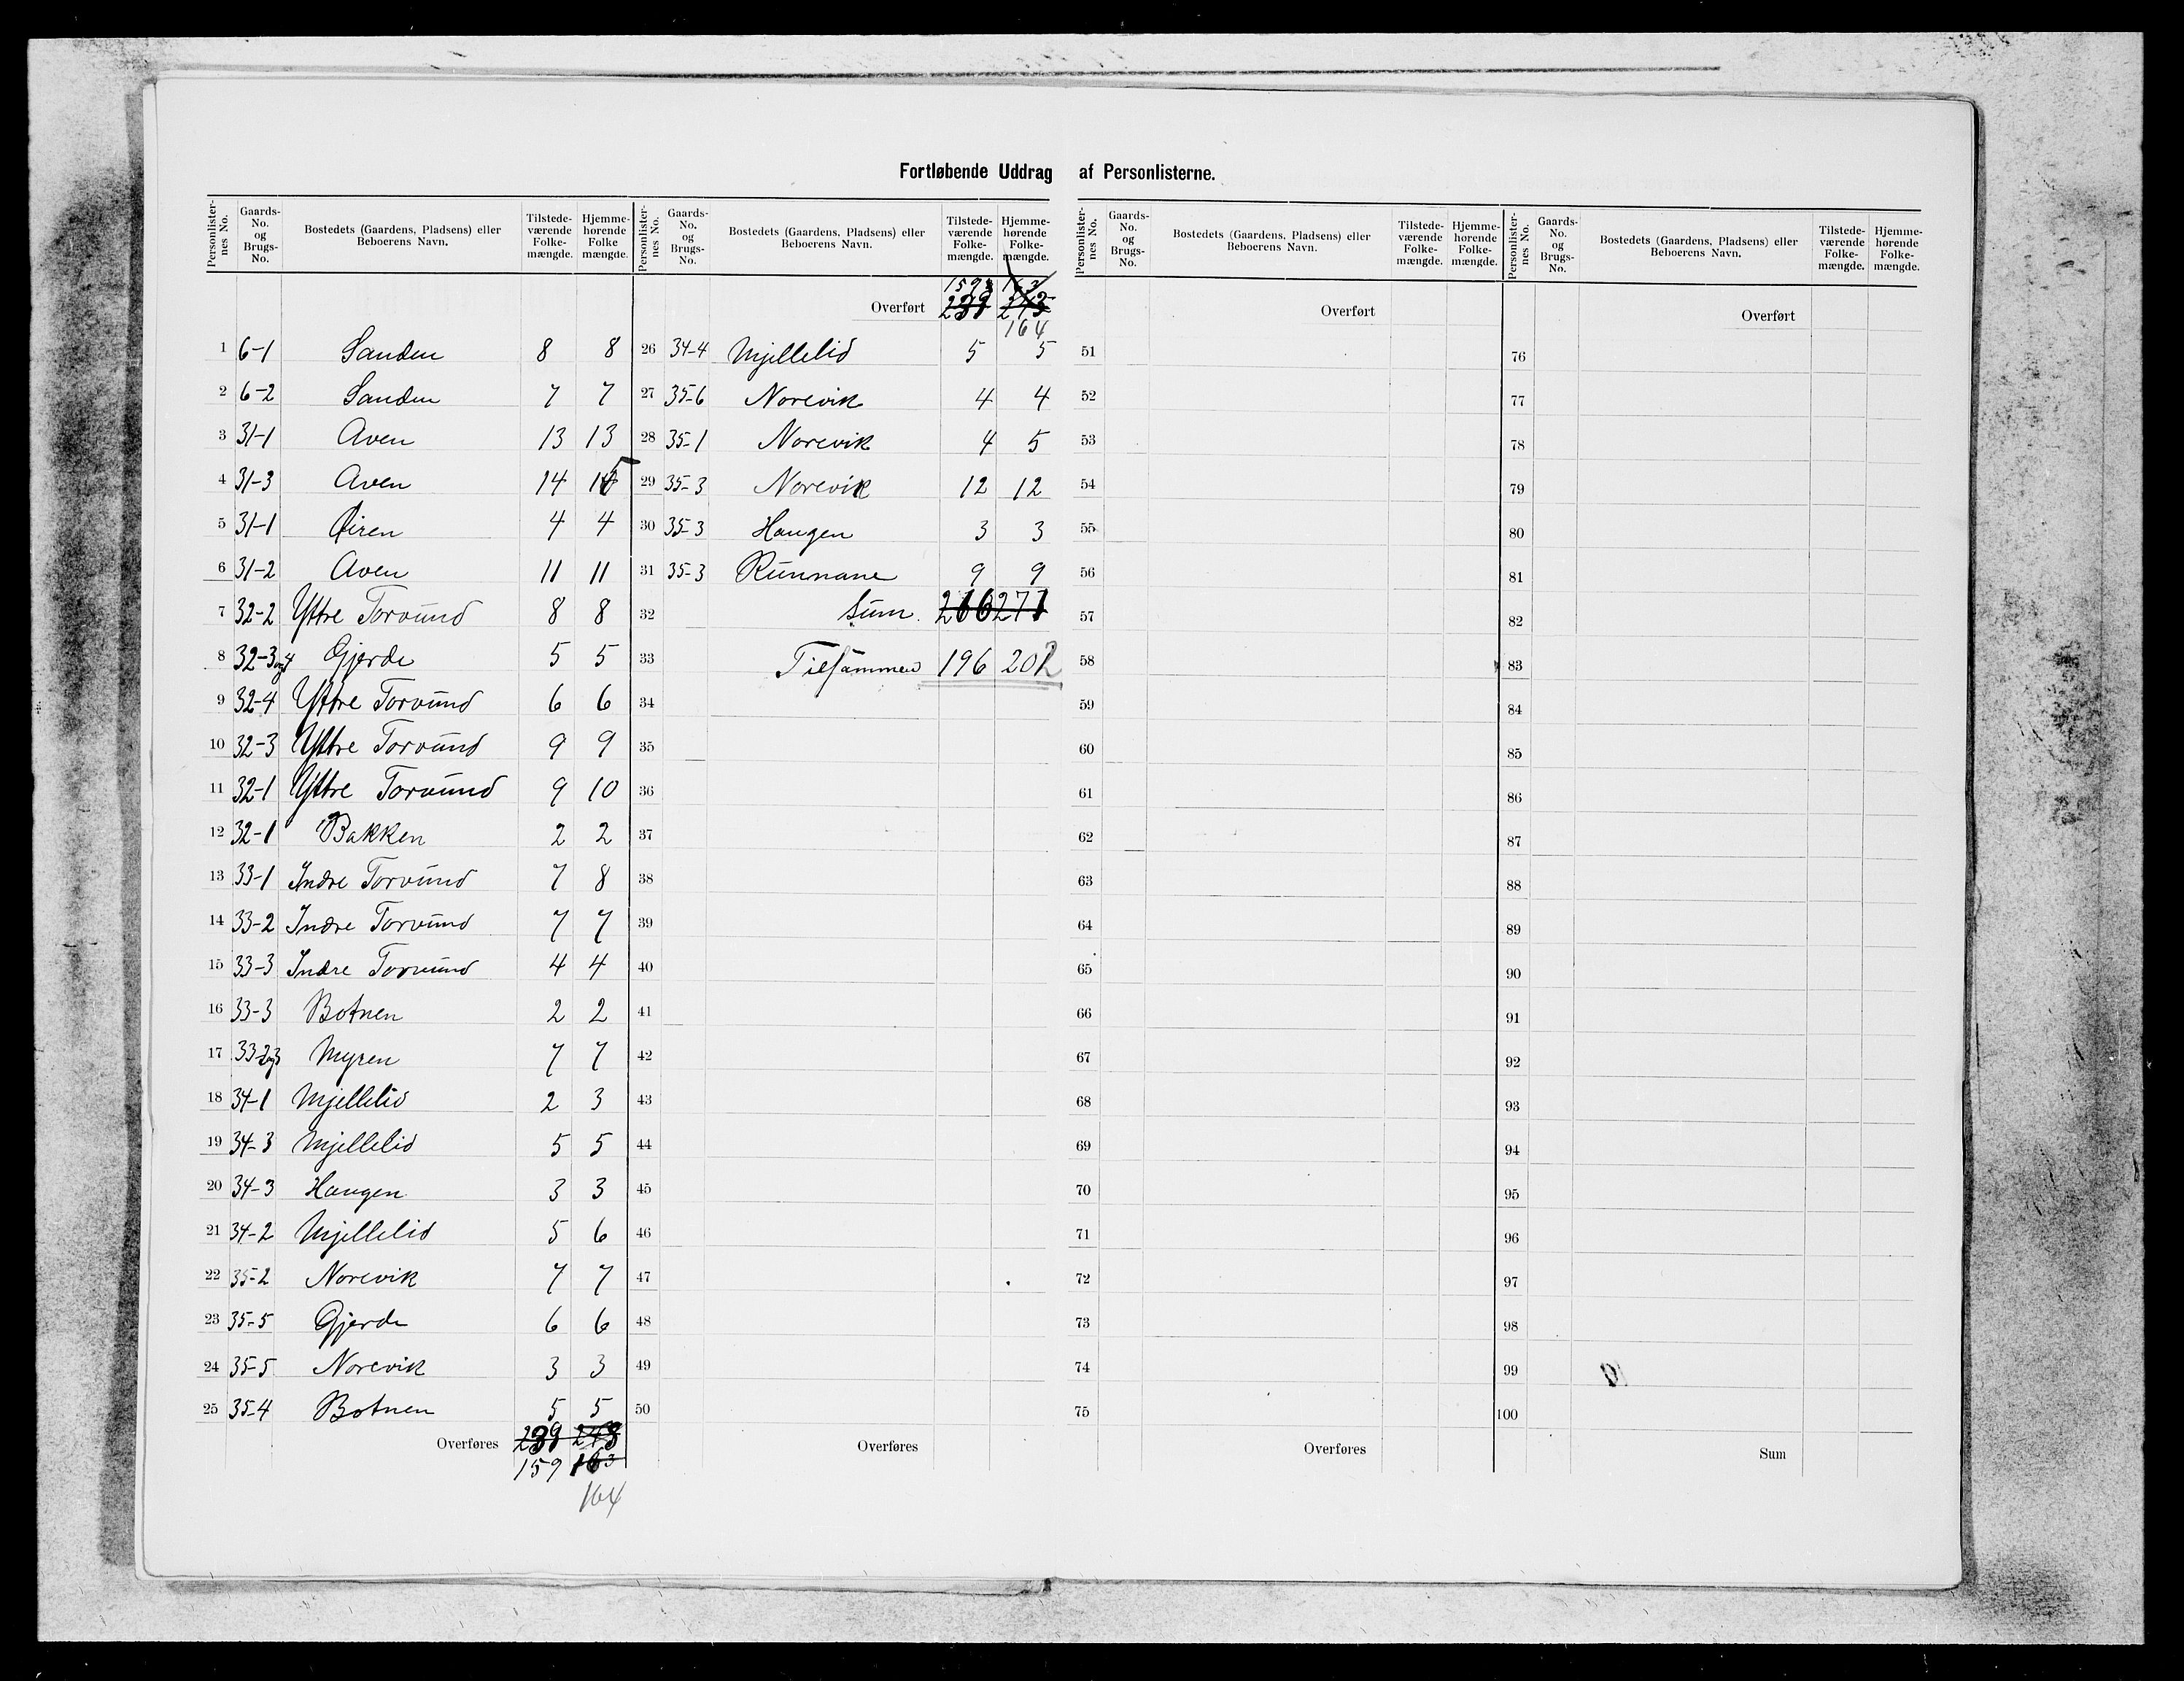 Fortløbende Uddrag af Personlisterne.
Personlister-nes No. Gaards-No. og Brugs-No. Bostedets (Gaardens, Pladsens) eller Beboerens Navn. Tilstede-værende Folke-mængde. Hjemme-hørende Folke mængde.
1 6-1 Sanden 8 8
2 6-2 Sanden 7 7
3 31-1 Aven 13 13
4 31-3 Aven 14 15
5 31-1 Øiren 4 4
6 31-2 Aven 11 11
7 32-2 Yttre Torvund 8 8
8 32-3og4 Gjerde 5 5
9 32-4 Yttre Torvund 6 6
10 32-3 Yttre Torvund 9 9
11 32-1 Yttre Torvund 9 10
12 32-1 Bakken 2 2
13 33-1 Indre Torvund 7 8
14 33-2 Indre Torvund 7 7
15 33-3 Indre Torvund 4 4
16 33-3 Botnen 2 2
17 33-2og3 Myren 7 7
18 34-1 Mjellelid 2 3
19 34-3 Mjellelid 5 5
20 34-3 Haugen 3 3
21 34-2 Mjellelid 5 6
22 35-2 Norevik 7 7
23 35-5 Gjerde 6 6
24 35-5 Norevik 3 3
25 35-4 Botnen 5 5
Overføres
159 163
164
Personlister-nes No. Gaards-No. og Brugs-No. Bostedets (Gaardens, Pladsens) eller Beboerens Navn. Tilstede-værende Folke-mængde. Hjemme-hørende Folke-mængde.
159 163
Overført
164
26 34-4 Mjellelid 5 5
27 35-6 Norevik 4 4
28 35-1 Norevik 4 5
29 35-3 Norevik 12 12
30 35-3 Haugen 3 3
31 35-3 Runnane 9 9
32 Sum. 266 271
33 Tilsammen 196 202
34
35
36
37
38
39
40
41
42
43
44
45
46
47
48
49
50
Overføres
Personlister-nes No. Gaards-No. og Brugs-No. Bostedets (Gaardens, Pladsens) eller Beboerens Navn. Tilstede-værende Folke-mængde. Hjemme-hørende Folke-mængde.
Overført
51
52
53
54
55
56
57
58
59
60
61
62
63
64
65
66
67
68
69
70
71
72
73
74
75
Overføres
Personlister-nes No. Gaards-No. og Brugs-No. Bostedets (Gaardens, Pladsens) eller Beboerens Navn. Tilstede-værende Folke-mængde. Hjemme-hørende Folke-mængde.
Overført
76
77
78
79
80
81
82
83
84
85
86
87
88
89
90
91
92
93
94
95
96
97
98
99
100
Sum